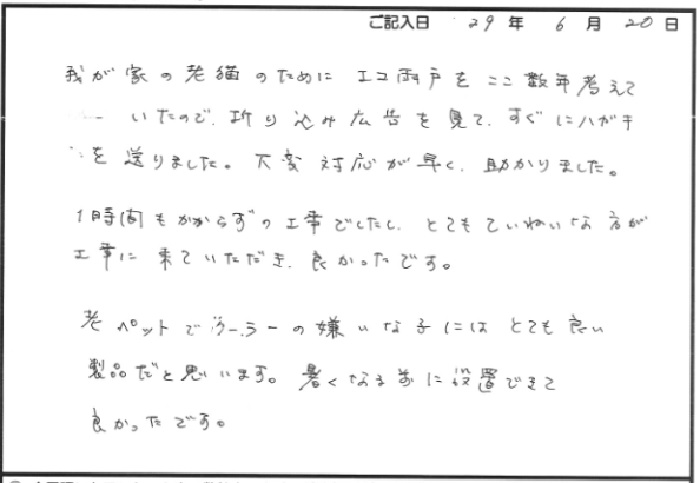 ご記入日 29年 6月 20日
我が家の老猫のために エコ雨戸を ここ数年考えて
いたので、折り込み広告を見て、すぐにハガキ
を送りました。大変対応が早く、助かりました。
1時間もかからずの工事でしたし、とてもていねいな方が
工事に来ていただき、良かったです。
老ペットでクーラーの嫌いな子にはとても良い
製品だと思います。暑くなる前に設置できて
良かったです。